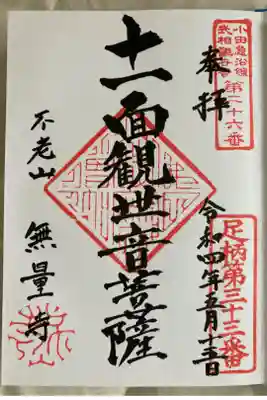 小田急沿線
第二十六番
奉拝
足柄第三十三番
令和四年五月
十一面観世音菩薩
不老山
無量寺